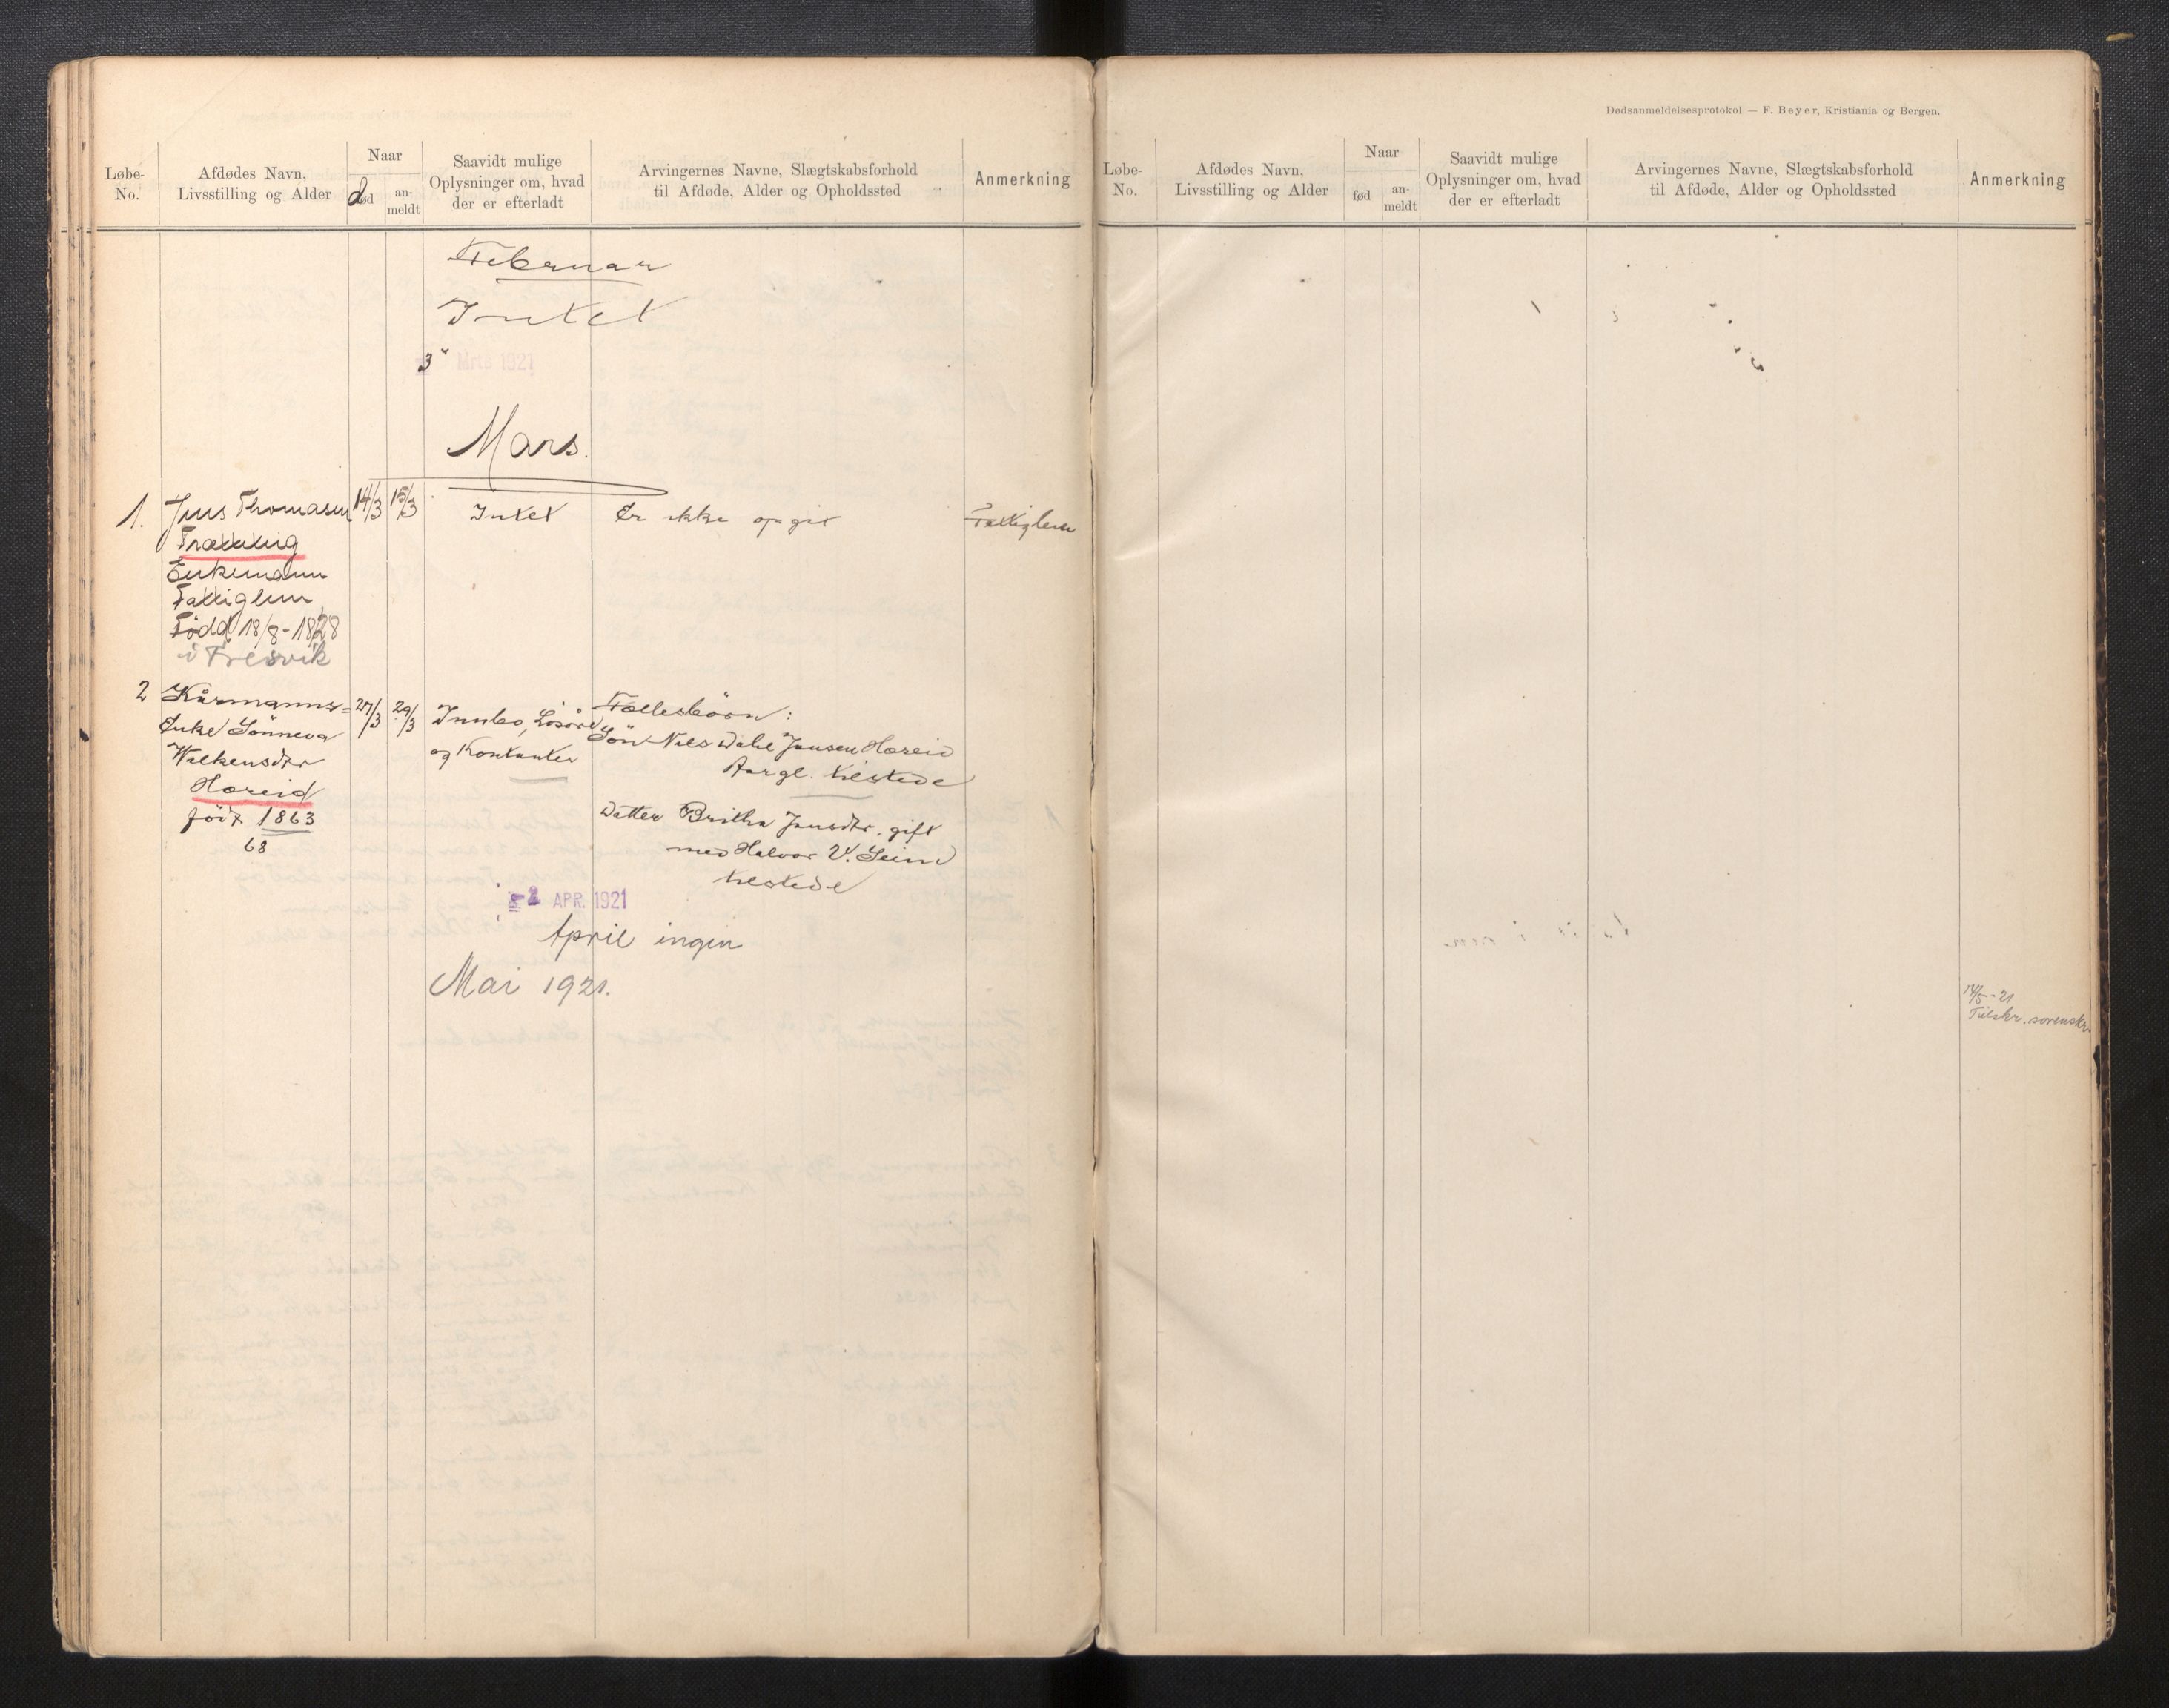 Løbe-
No.
Afdødes Navn,
Livsstilling og Alder
Naar
død
an-
meldt
Saavidt mulige
Oplysninger om, hvad
der er efterladt
Arvingernes Navne, Slægtskabsforhold
til Afdøde, Alder og Opholdssted
Anmerkning
Februar
Intet
3 Mrts 1921
Mars.
1. Jens Thomasen 14/3 15/3 Intet Er ikke opgit Fattiglem
Enkemann
Fattiglem
Född 18/8-1828
i Fresvik
2 Kårmanns- 27/3 29/3 Innbo, Lösöre Fællesbörn:
Enke Sönneva og Kontanter Sön Nils Dahl Jensen Hæreid
Aargl. tilstede
Hæreid
föit 1863
68
Datter Britha Jensdtr. gift
med Halvor V. Seim
tilstede
-2 APR. 1921
April ingen
Mai 1921.
Dødsanmeldelsesprotokol — F. Beyer, Kristiania og Bergen.
Løbe-
No.
Afdødes Navn,
Livsstilling og Alder
Naar
fød
an-
meldt
Saavidt mulige
Oplysninger om, hvad
der er efterladt
Arvingernes Navne, Slægtskabsforhold
til Afdøde, Alder og Opholdssted
Anmerkning
14/5-21
Tilskr. sorenskr.